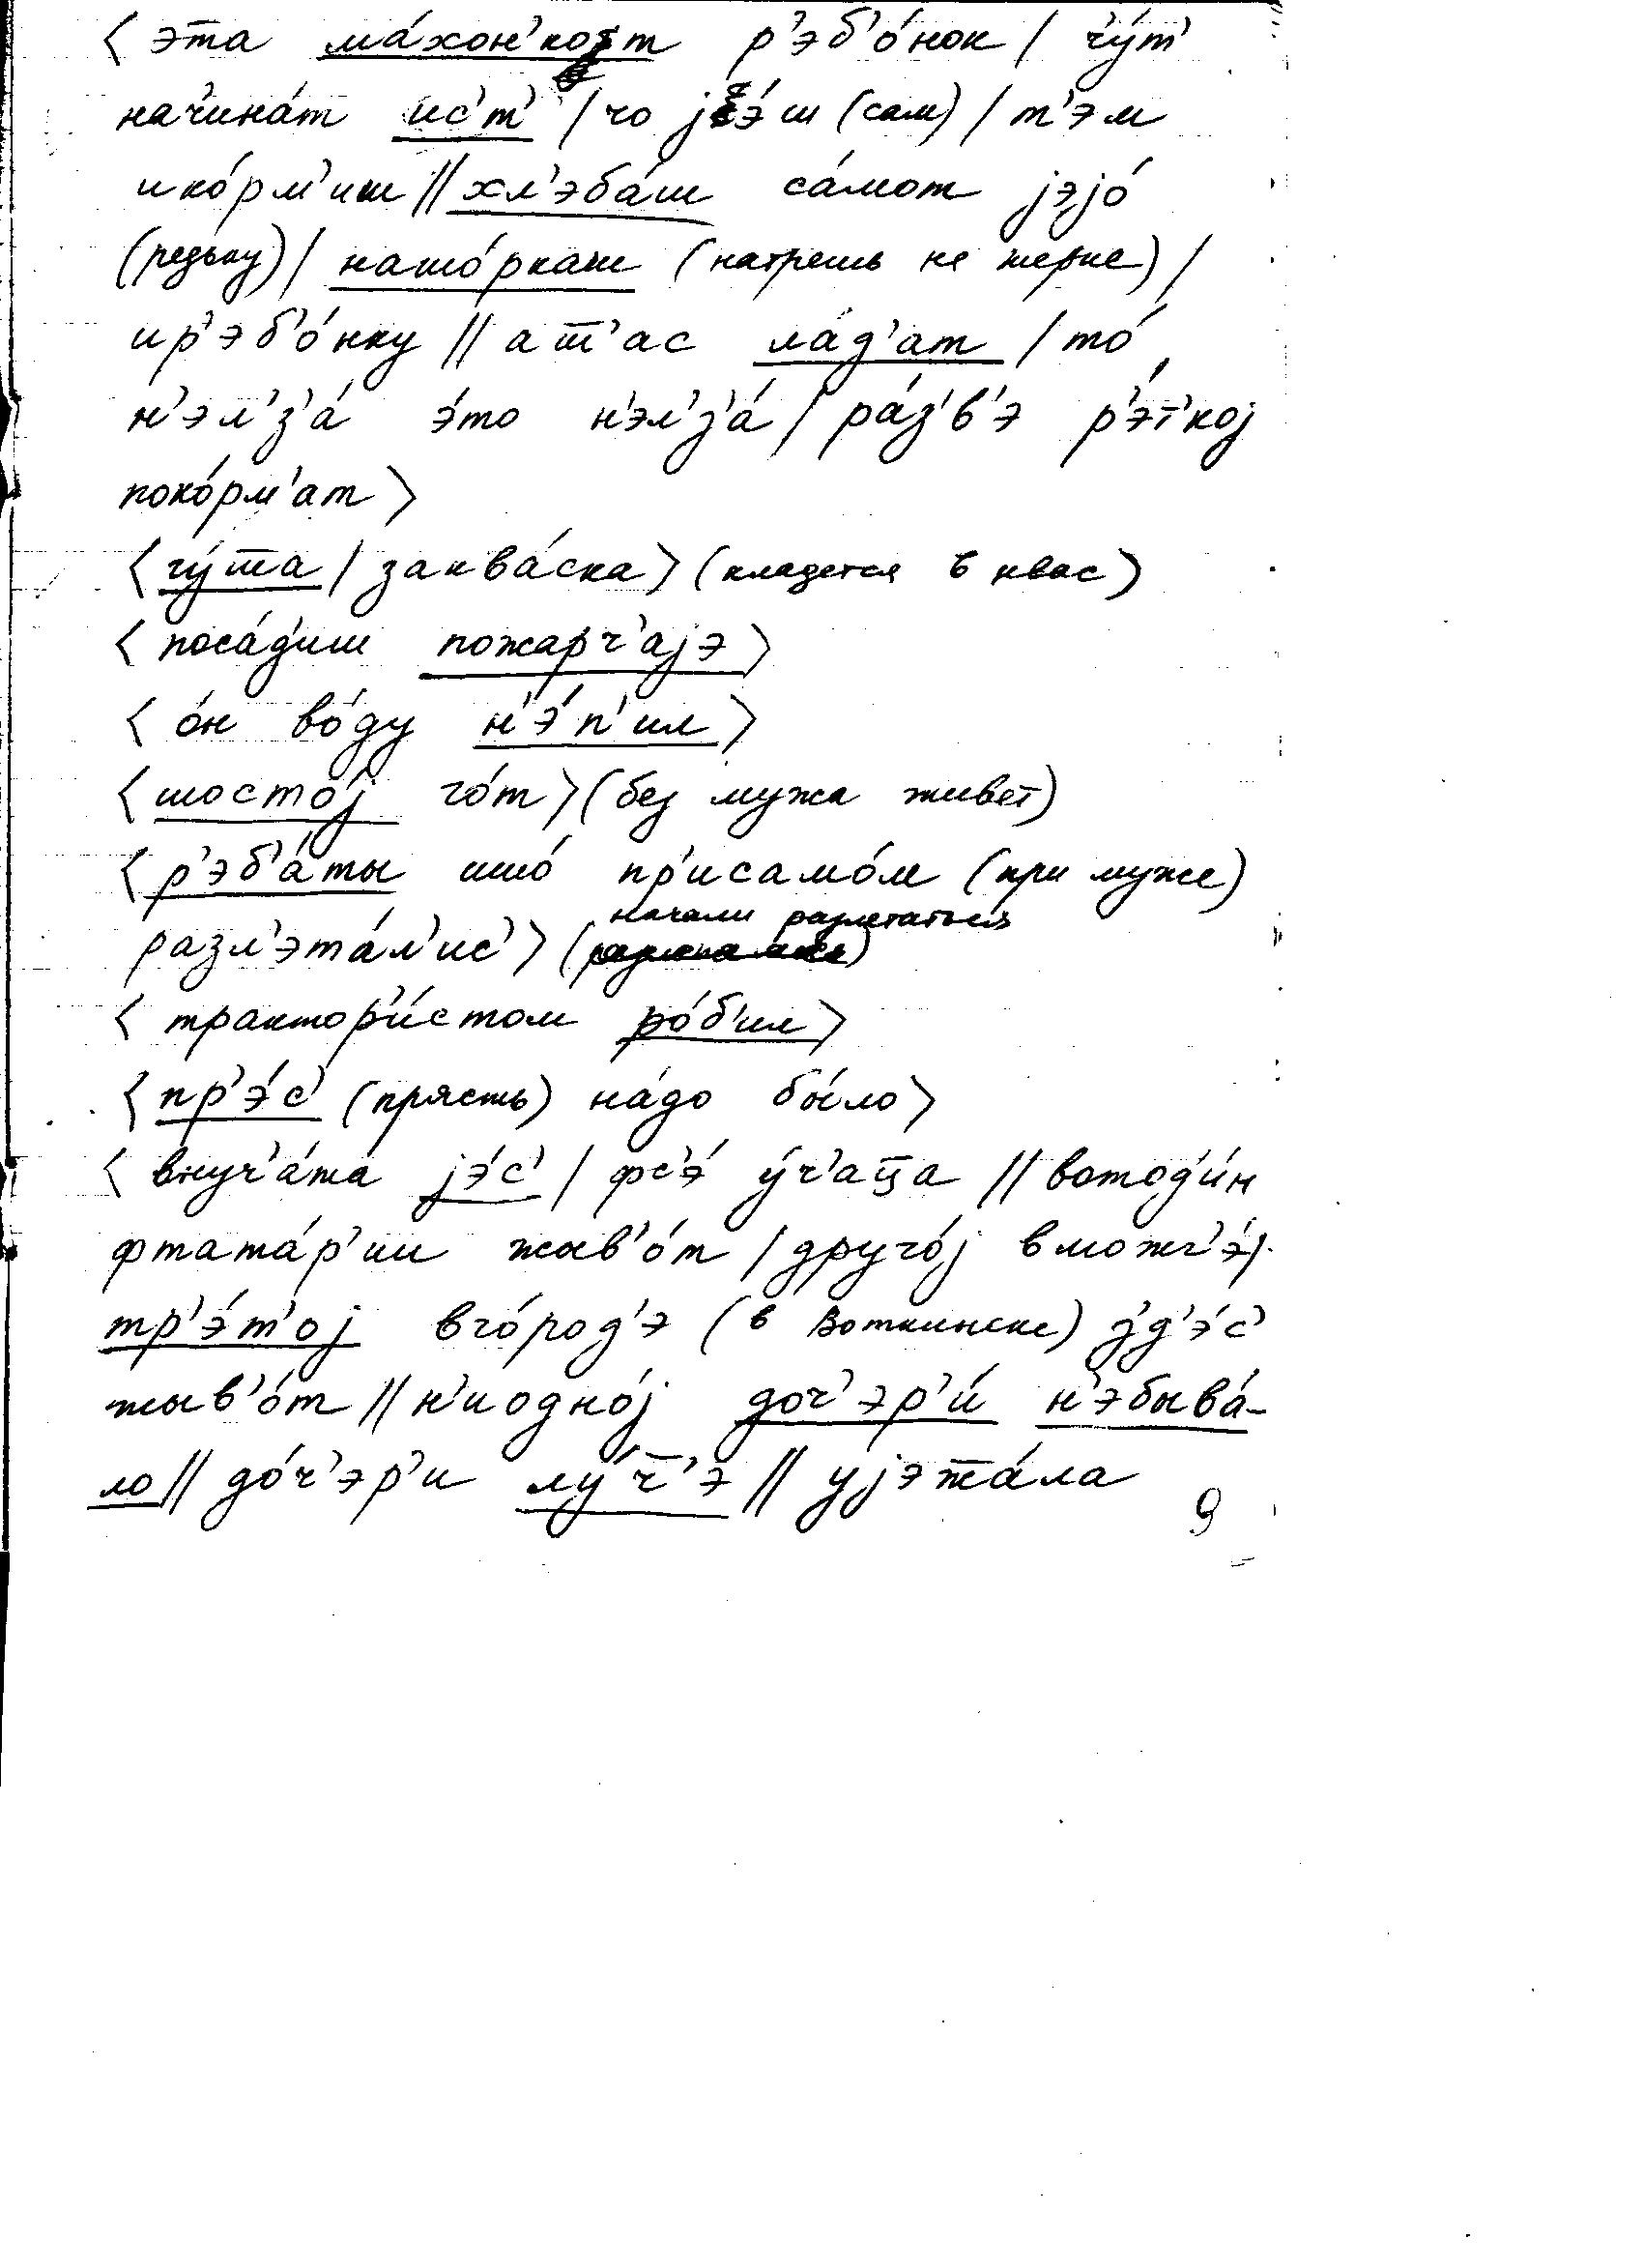 ⟨ эт̅а ма́хон'кот р'эб'о́нок / ч'у́т'
нач'ина́т ис'т' / чо jэ́ш (сам) / т'эм
ико́рм'иш // хл'эба́ш са́мот jэjо́
(редьку) / нашо́ркаш (натрешь на терке) /
ир'эб'о́нку // ат̅'ас ла́д'ат / то́
н'эл'з'а́ э́то н'эл'з'а́ / ра́з'в'э р'э́т'кој
поко́рм'ат ⟩
⟨ гу́ш̅а / заква́ска ⟩ (кладется в квас)
⟨ поса́д'иш пожарч'ајэ ⟩
⟨ о́н во́ду н'э́п'ил ⟩
⟨ шосто́ј го́т ⟩ (без мужа живет)
⟨ р'эб'а́ты ишо́ пр'исамо́м (при муже)
начали разлетаться
разл'эта́л'ис' ⟩
⟨ трактор'и́стом ро́б'ил ⟩
⟨ пр'э́с' (прясть) на́до бы́ло ⟩
⟨ внуч'а́та jэ́с' / фс'э́ у́ч'ац̅а // вотод'и́н
фтата́р'ии жыв'о́т / друго́ј вможг'э́ /
тр'э́т'ој вго́род'э (в Воткинске) з'д'э́с'
жыв'о́т // н'иодно́ј доч'эр'и́ н'эбыва́-
ло // до́ч'эр'и лу́ч̅'э // уjэж̅а́ла
9